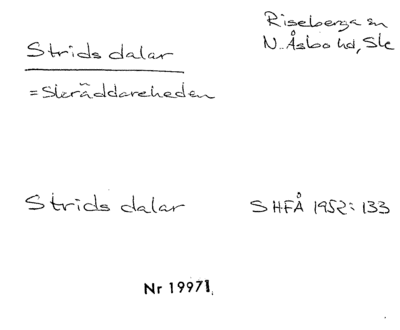 Riseberga sn
N. Åsbo hd, Sk
Strids dalar
=Skräddareheden
Strids dalar SHFÅ 1952: 133
Nr 19971